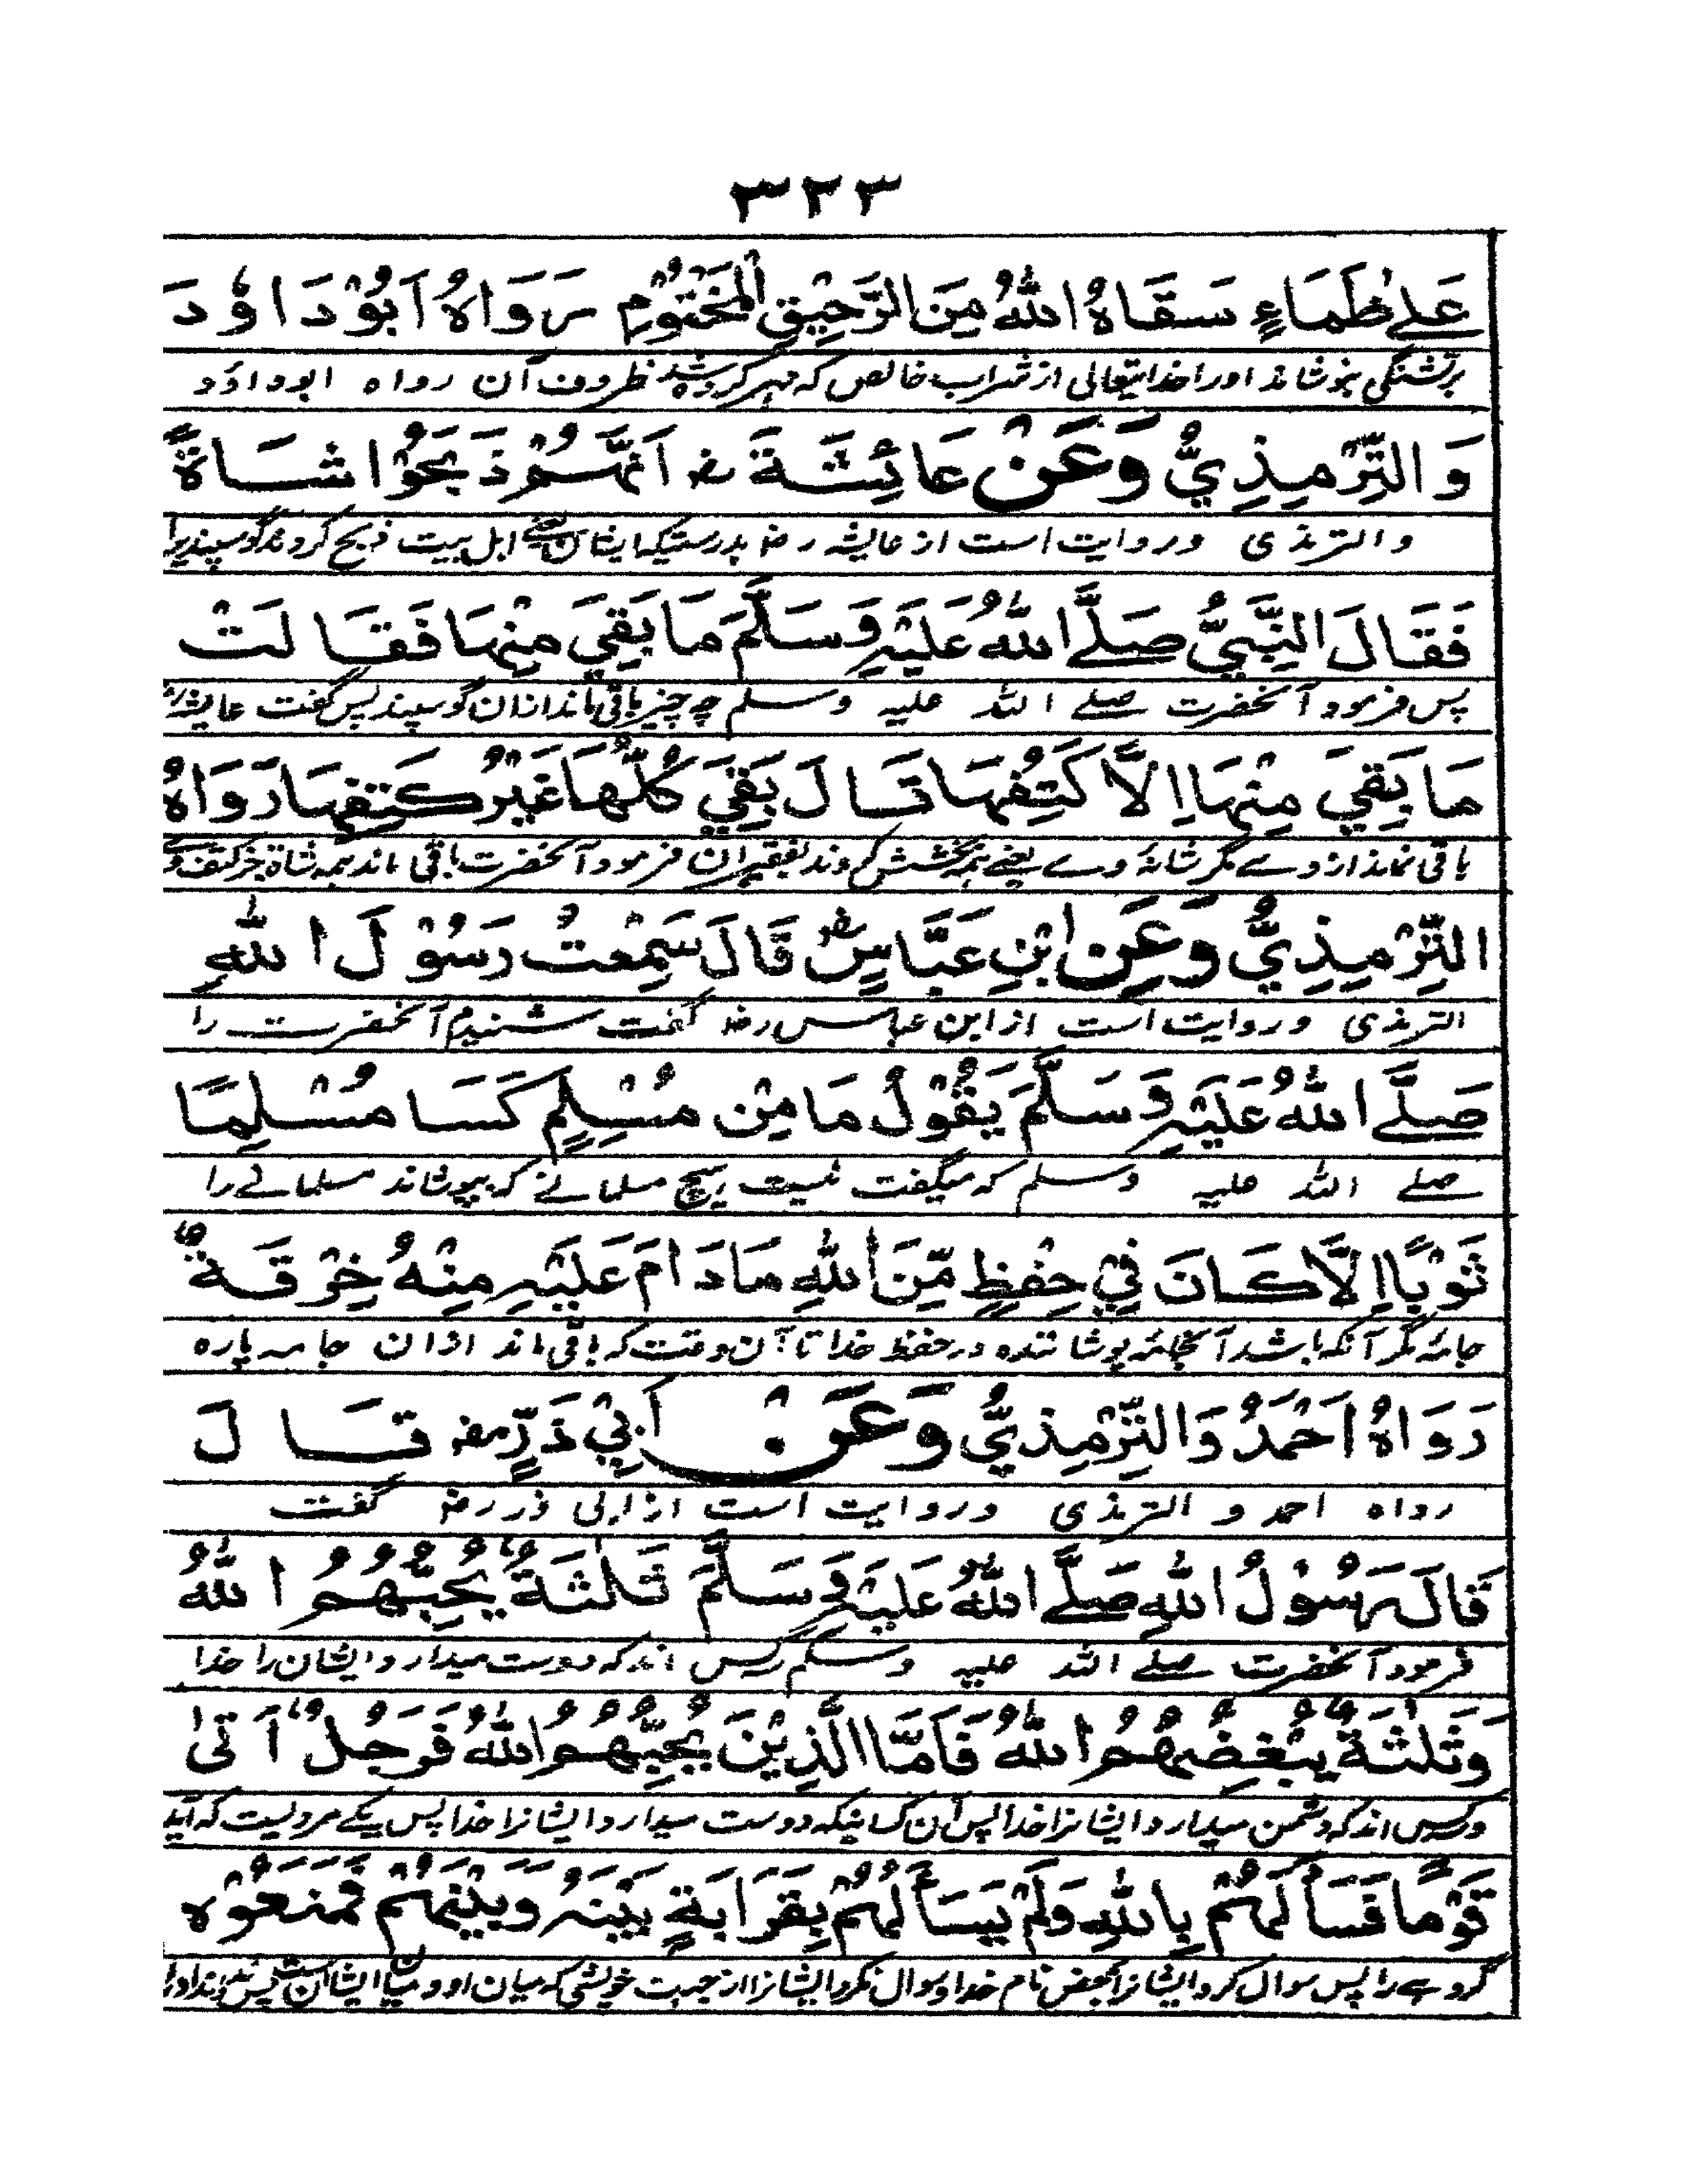 ۳۲۳
عَلٰے ظَمَاءٍ سَقَاهُ اللّٰهُ مِنَ الرَّحِيْقِ الْمَخْتُوْمِ رَوَاهُ اَبُوْ دَاوٗدَ
برتشنگی بنوشاند اورا خدایتعالی از شراب خالص که مهر کرده شد ظروف آن رواه ابوداؤد
وَالتِّرْمِذِيُّ وَعَنْ عَائِشَةَ رض اَنَّهُمْ ذَبَحُوْا شَاةً
والترمذی وروایت است از عایشه رض بدرستیکه ایشان یعنے اہل بیت ذبح کردند گوسپندیرا
فَقَالَ النَّبِيُّ صَلَّے اللّٰهُ عَلَيْهِ وَسَلَّمَ مَا بَقِيَ مِنْهَا فَقَالَتْ
پس فرمود آنحضرت صلے اللہ علیہ وسلم چه چیز باقی ماند ازان گوسپند پس گفت عایشہ رض
مَا بَقِيَ مِنْهَا اِلَّا كَتِفُهَا قَالَ بَقِيَ كُلُّهَا غَيْرُ كَتِفِهَا رَوَاهُ
باقی نماند از وے مگر شانۂ وے یعنے ہمہ بخشش کردند بفقیران فرمود آنحضرت باقی ماند ہمہ شاة جز کتف وے
التِّرْمِذِيُّ وَعَنِ ابْنِ عَبَّاسٍ رض قَالَ سَمِعْتُ رَسُوْلَ اللّٰهِ
الترمذی وروایت است از ابن عباس رض گفت شنیدم آنحضرت را
صَلَّے اللّٰهُ عَلَيْهِ وَسَلَّمَ يَقُوْلُ مَا مِنْ مُسْلِمٍ كَسَا مُسْلِمًا
صلے اللہ علیہ وسلم که میگفت نیست ہیچ مسلمانے که بپوشاند مسلمانے را
ثَوْبًا اِلَّا كَانَ فِيْ حِفْظٍ مِّنَ اللّٰهِ مَا دَامَ عَلَيْهِ مِنْهُ خِرْقَةٌ
جامۂ مگر آنکه باشد آنجامۂ پوشانندہ در حفظ خدا تا آن وقت که باقی ماند ازان جامہ پارہ
رَوَاهُ اَحْمَدُ وَالتِّرْمِذِيُّ وَعَنْ اَبِيْ ذَرٍّ رض قَالَ
رواہ احمد و الترمذی وروایت است از ابی ذر رض گفت
قَالَ رَسُوْلُ اللّٰهِ صَلَّے اللّٰهُ عَلَيْهِ وَسَلَّمَ ثَلٰثَةٌ يُحِبُّهُمُ اللّٰهُ
فرمود آنحضرت صلے اللہ علیہ وسلم سہ کس اند که دوست میدارد ایشان را خدا
وَثَلٰثَةٌ يُبْغِضُهُمُ اللّٰهُ فَاَمَّا الَّذِيْنَ يُحِبُّهُمُ اللّٰهُ فَرَجُلٌ اَتٰى
وسہ کس اند که دشمن میدارد ایشانرا خدا پس آن کسانیکه دوست میدارد ایشانرا خدا پس یکے مردیست که آید
قَوْمًا فَسَأَلَهُمْ بِاللّٰهِ وَلَمْ يَسَأَلْهُمْ بِقَرَابَةٍ بَيْنَهُ وَبَيْنَهُمْ فَمَنَعُوْهُ
گروہے را پس سوال کرد ایشانرا بمحض نام خدا وسوال نکرد ایشانرا از جہت خویشی که میان او ومیان ایشان است پس